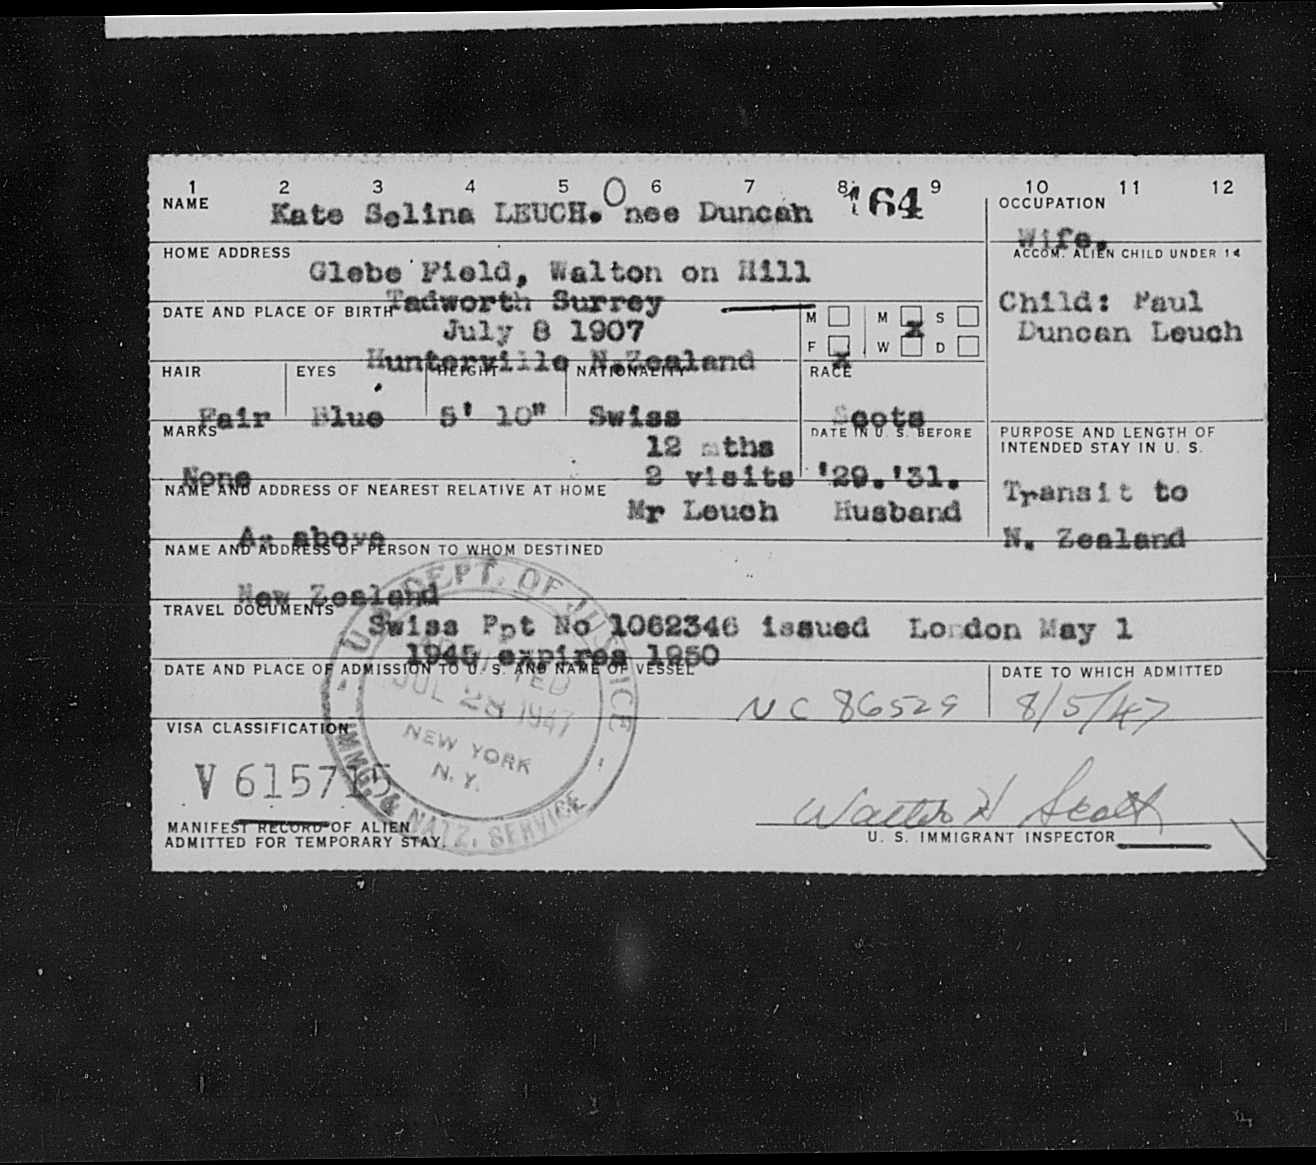 1 2 3 4 5 6 7 8 9 10 11 12
NAME
Kate Selina LEUCH. nee Duncan
164
OCCUPATION
Wife.
HOME ADDRESS
Glebe Field, Walton on Hill
Tadworth Surrey
ACCOM. ALIEN CHILD UNDER 14
Child: Paul
Duncan Leuch
DATE AND PLACE OF BIRTH
July 8 1907
Hunterville N.Zealand
M M x S
F x W D
HAIR EYES HEIGHT NATIONALITY RACE
Fair Blue 5' 10" Swiss Scots
MARKS
None
12 mths
2 visits '29.'31.
DATE IN U. S. BEFORE
PURPOSE AND LENGTH OF
INTENDED STAY IN U. S.
Transit to
N. Zealand
NAME AND ADDRESS OF NEAREST RELATIVE AT HOME
Mr Leuch Husband
As above
NAME AND ADDRESS OF PERSON TO WHOM DESTINED
New Zealand
TRAVEL DOCUMENTS
Swiss Ppt No 1062346 issued London May 1
1945 expires 1950
DATE AND PLACE OF ADMISSION TO U. S. AND NAME OF VESSEL
NC 86529
DATE TO WHICH ADMITTED
8/5/47
U.S. DEPT. OF JUSTICE
ADMITTED
JUL 28 1947
NEW YORK
N. Y.
IMMG. & NATZ. SERVICE
VISA CLASSIFICATION
V 615715
Walter H Scott
U. S. IMMIGRANT INSPECTOR
MANIFEST RECORD OF ALIEN
ADMITTED FOR TEMPORARY STAY.